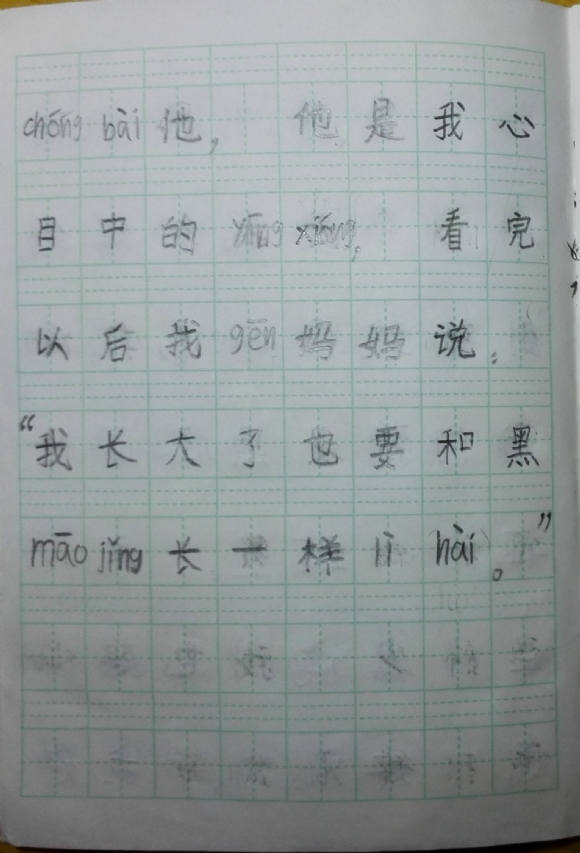 chóng bài 他， 他是我心
目中的 yīng xióng， 看完
以后我 gēn 妈妈说：
“我长大了也要和黑
māo jǐng 长一样 lì hài。”